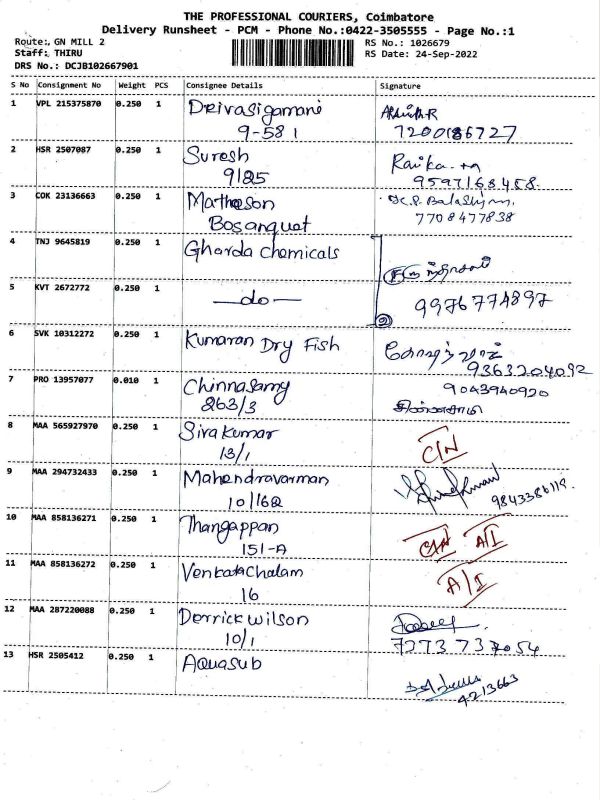 THE PROFESSIONAL COURIERS, Coimbatore
Delivery Runsheet - PCM - Phone No.:0422-3505555 - Page No.:1
Route: GN MILL 2
RS No.: 1026679
Staff: THIRU
RS Date: 24-Sep-2022
DRS No.: DCJB102667901
S No Consignment No Weight PCS Consignee Details Signature
1 VPL 215375870 0.250 1 Deivasigamani
9-581 7200186727
2 HSR 2507087 0.250 1 Suresh
9/25 9597168458
3 COK 23136663 0.250 1 Matheson
Bosanquat 7708477838
4 TNJ 9645819 0.250 1 Gharda Chemicals
5 KVT 2672772 0.250 1 —do— 9976774897
6 SVK 10312272 0.250 1 Kumaran Dry Fish
9363204092
7 PRO 13957077 0.010 1 Chinnasamy 9043940920
263/3 சின்னசாமி
8 MAA 565927970 0.250 1 Sivakumar C/N
13/1
9 MAA 294732433 0.250 1 Mahendravarman
10/162
10 MAA 858136271 0.250 1 Thangappan
151-A A/I
11 MAA 858136272 0.250 1 Venkatachalam A/I
16
12 MAA 287220088 0.250 1 Derrick Wilson
10/1 7373737054
13 HSR 2505412 0.250 1 Aquasub
4213663